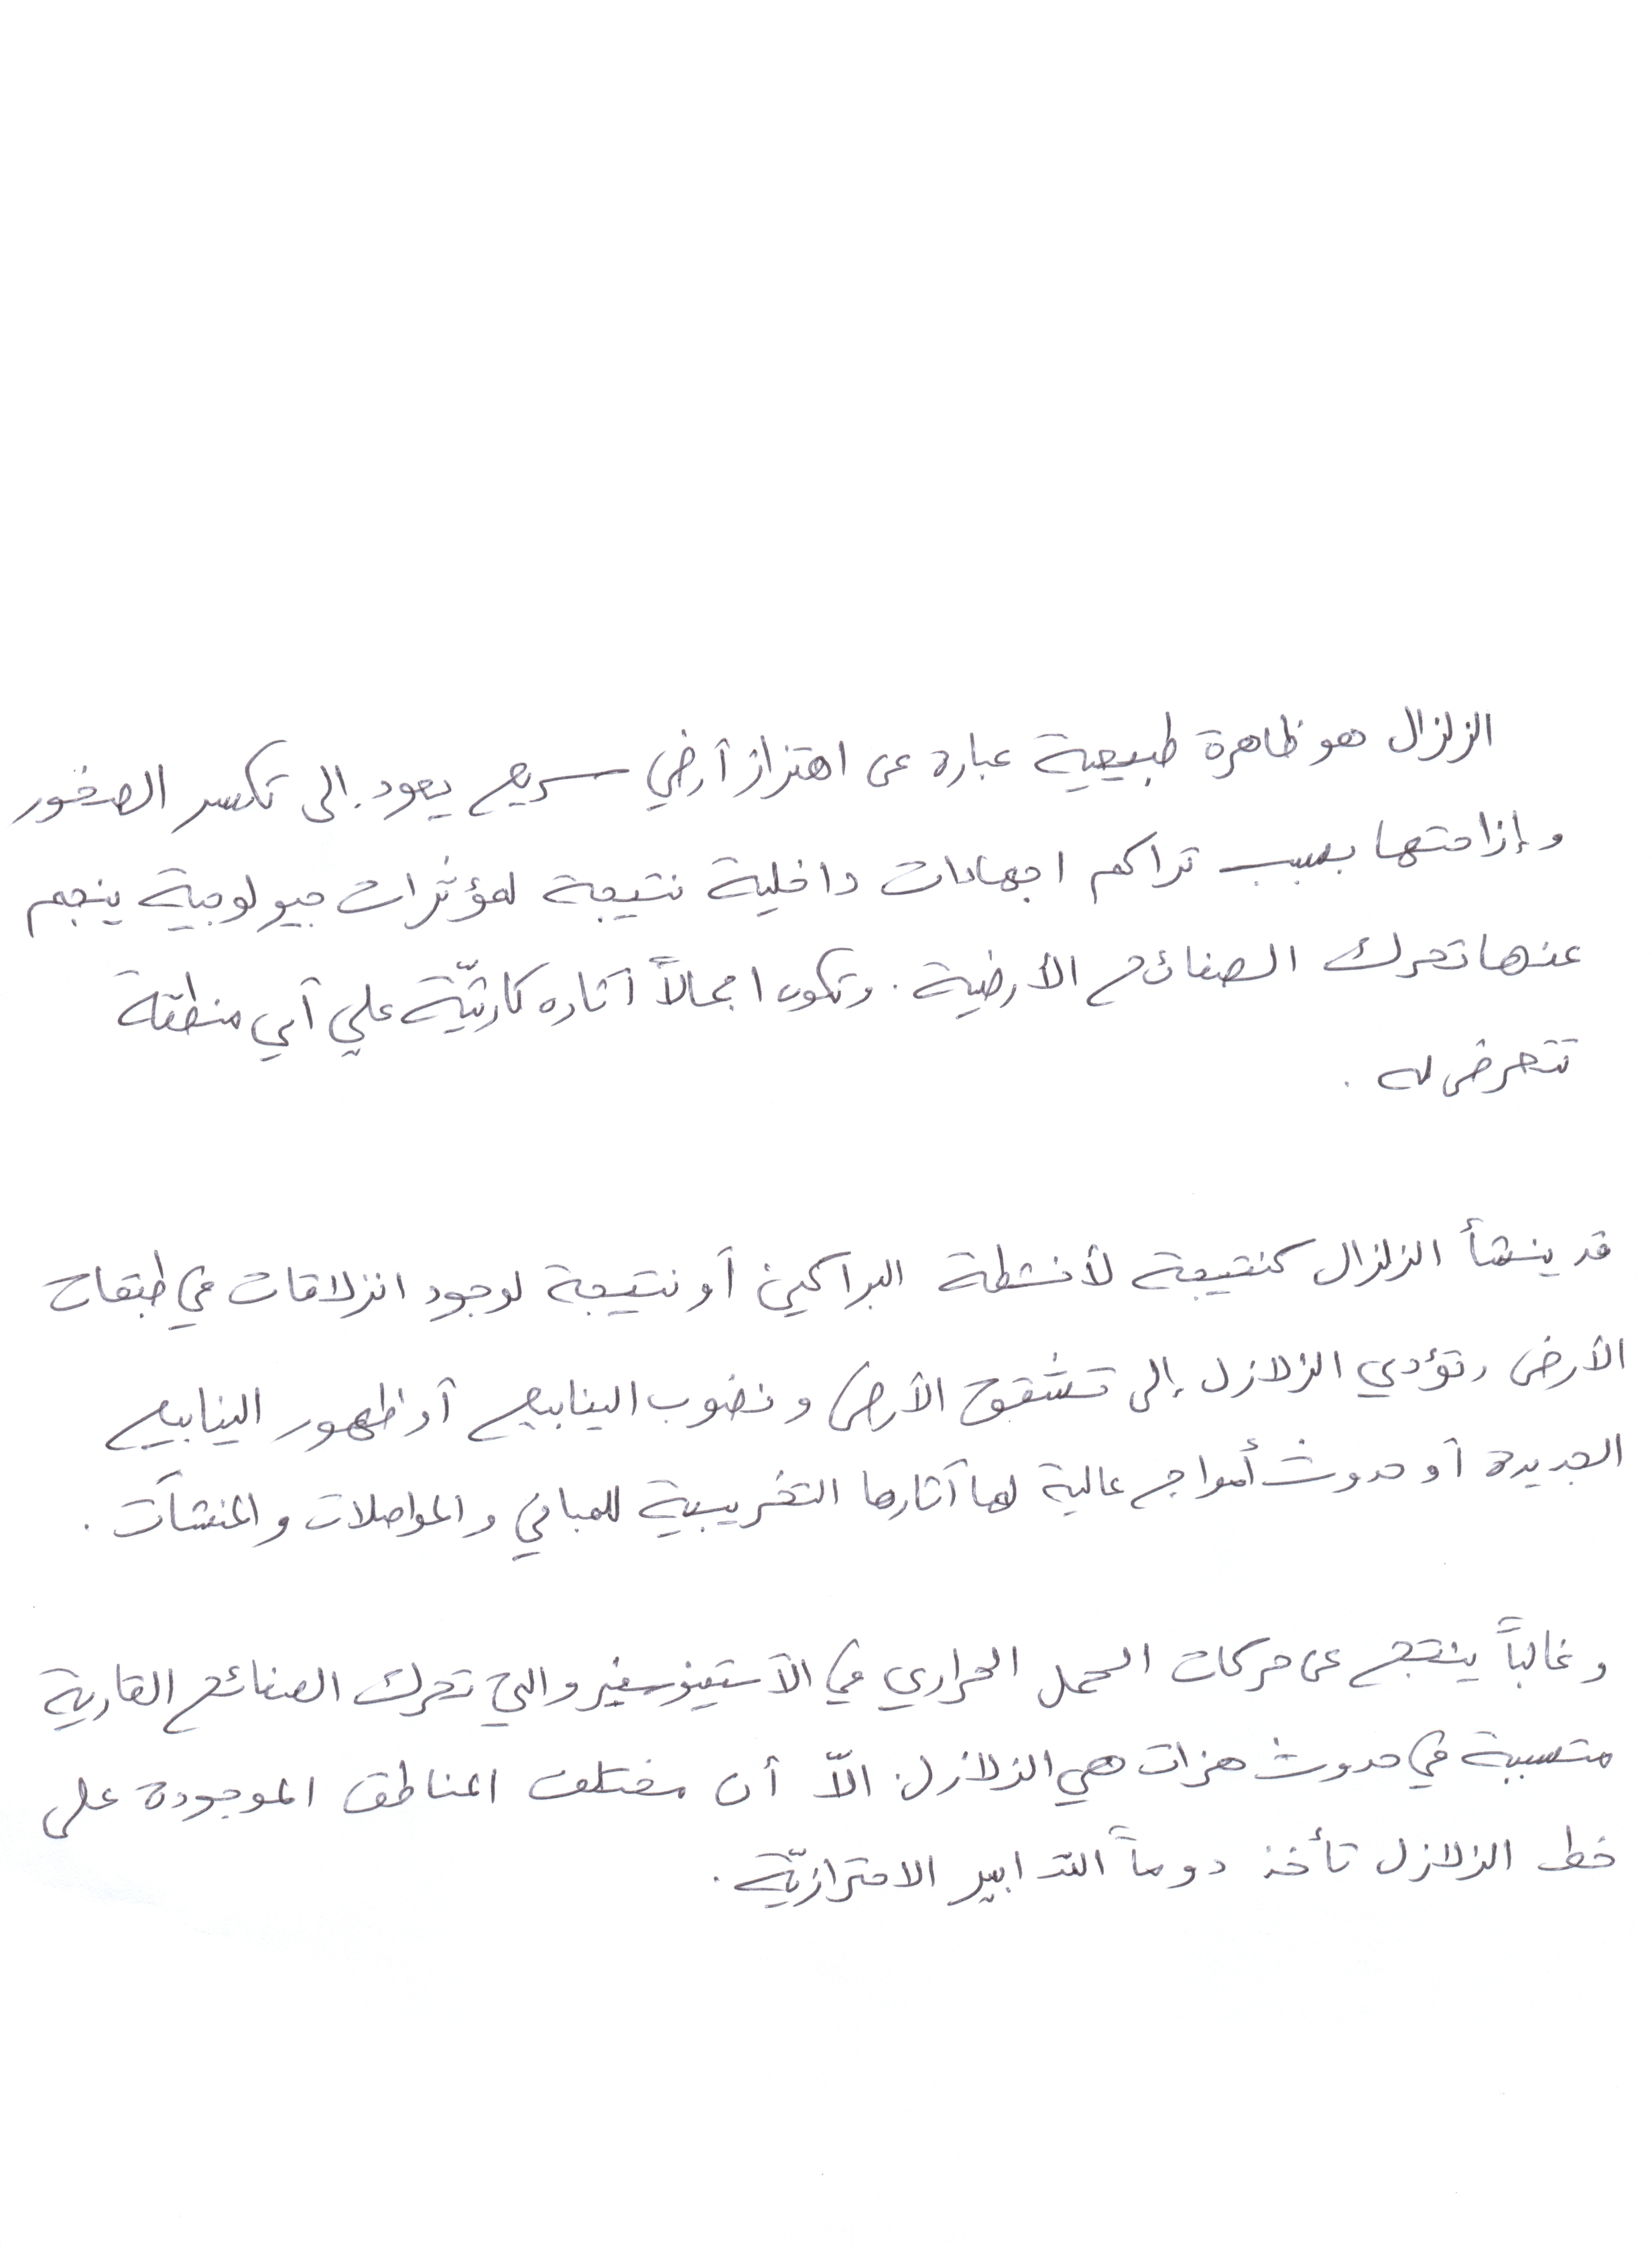 الزلزال هو ظاهرة طبيعية عبارة عن اهتزاز أرضي سريع يعود إلى تكسر الصخور
وإزاحتها بسبب تراكم اجهادات داخلية نتيجة لمؤثرات جيولوجية ينجم
عنها تحرك الصفائح الأرضية. وتكون اجمالاً آثاره كارثيّة علي أي منطقة
تتعرض له .
قد ينشأ الزلزال كنتيجة لأنشطة البراكين أو نتيجة لوجود انزلاقات في طبقات
الأرض وتؤدي الزلازل إلى تشقق الأرض ونضوب الينابيع أو ظهور الينابيع
الجديدة أو حدوث أمواج عالية لها آثارها التخريبية للمباني والمواصلات والمنشآت .
وغالباً ينتج عن حركات الحمل الحراري في الأستينوسفير والتي تحرك الصفائح القارية
متسببة في حدوث هزات هي الزلازل. الاّ أن مختلف المناطق الموجودة على
خط الزلازل تأخذ دوماً التدابير الاحترازيّة .